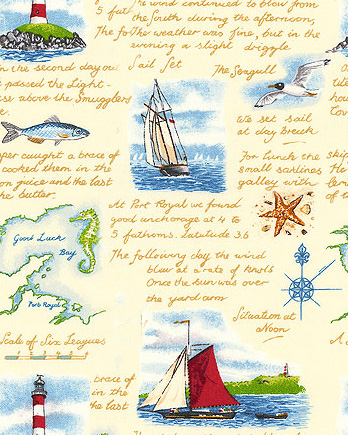 he wind continued to blow from
5 fat the South during the afternoon,
The fo The weather was fine, but in the
evening a slight driggle.
Sail Set
The Seagull
n the second day ou
passed the Light-
se above the Smugglers
e.
We set sail
at day break
per caught a brace of
cooked them in the
on juice and the last
the butter
For lunch the
small sardines
galley with
skip
He
le
of
At Port Royal we found
good anchorage at 4 to
5 fathoms. Latitude 36
Good Luck
Bay
The following day the wind
blew at a rate of knots
Once the sun was over
the yard arm
Port Royal
Situation at
Noon
Scale of Six Leagues
brace of
in the
the last